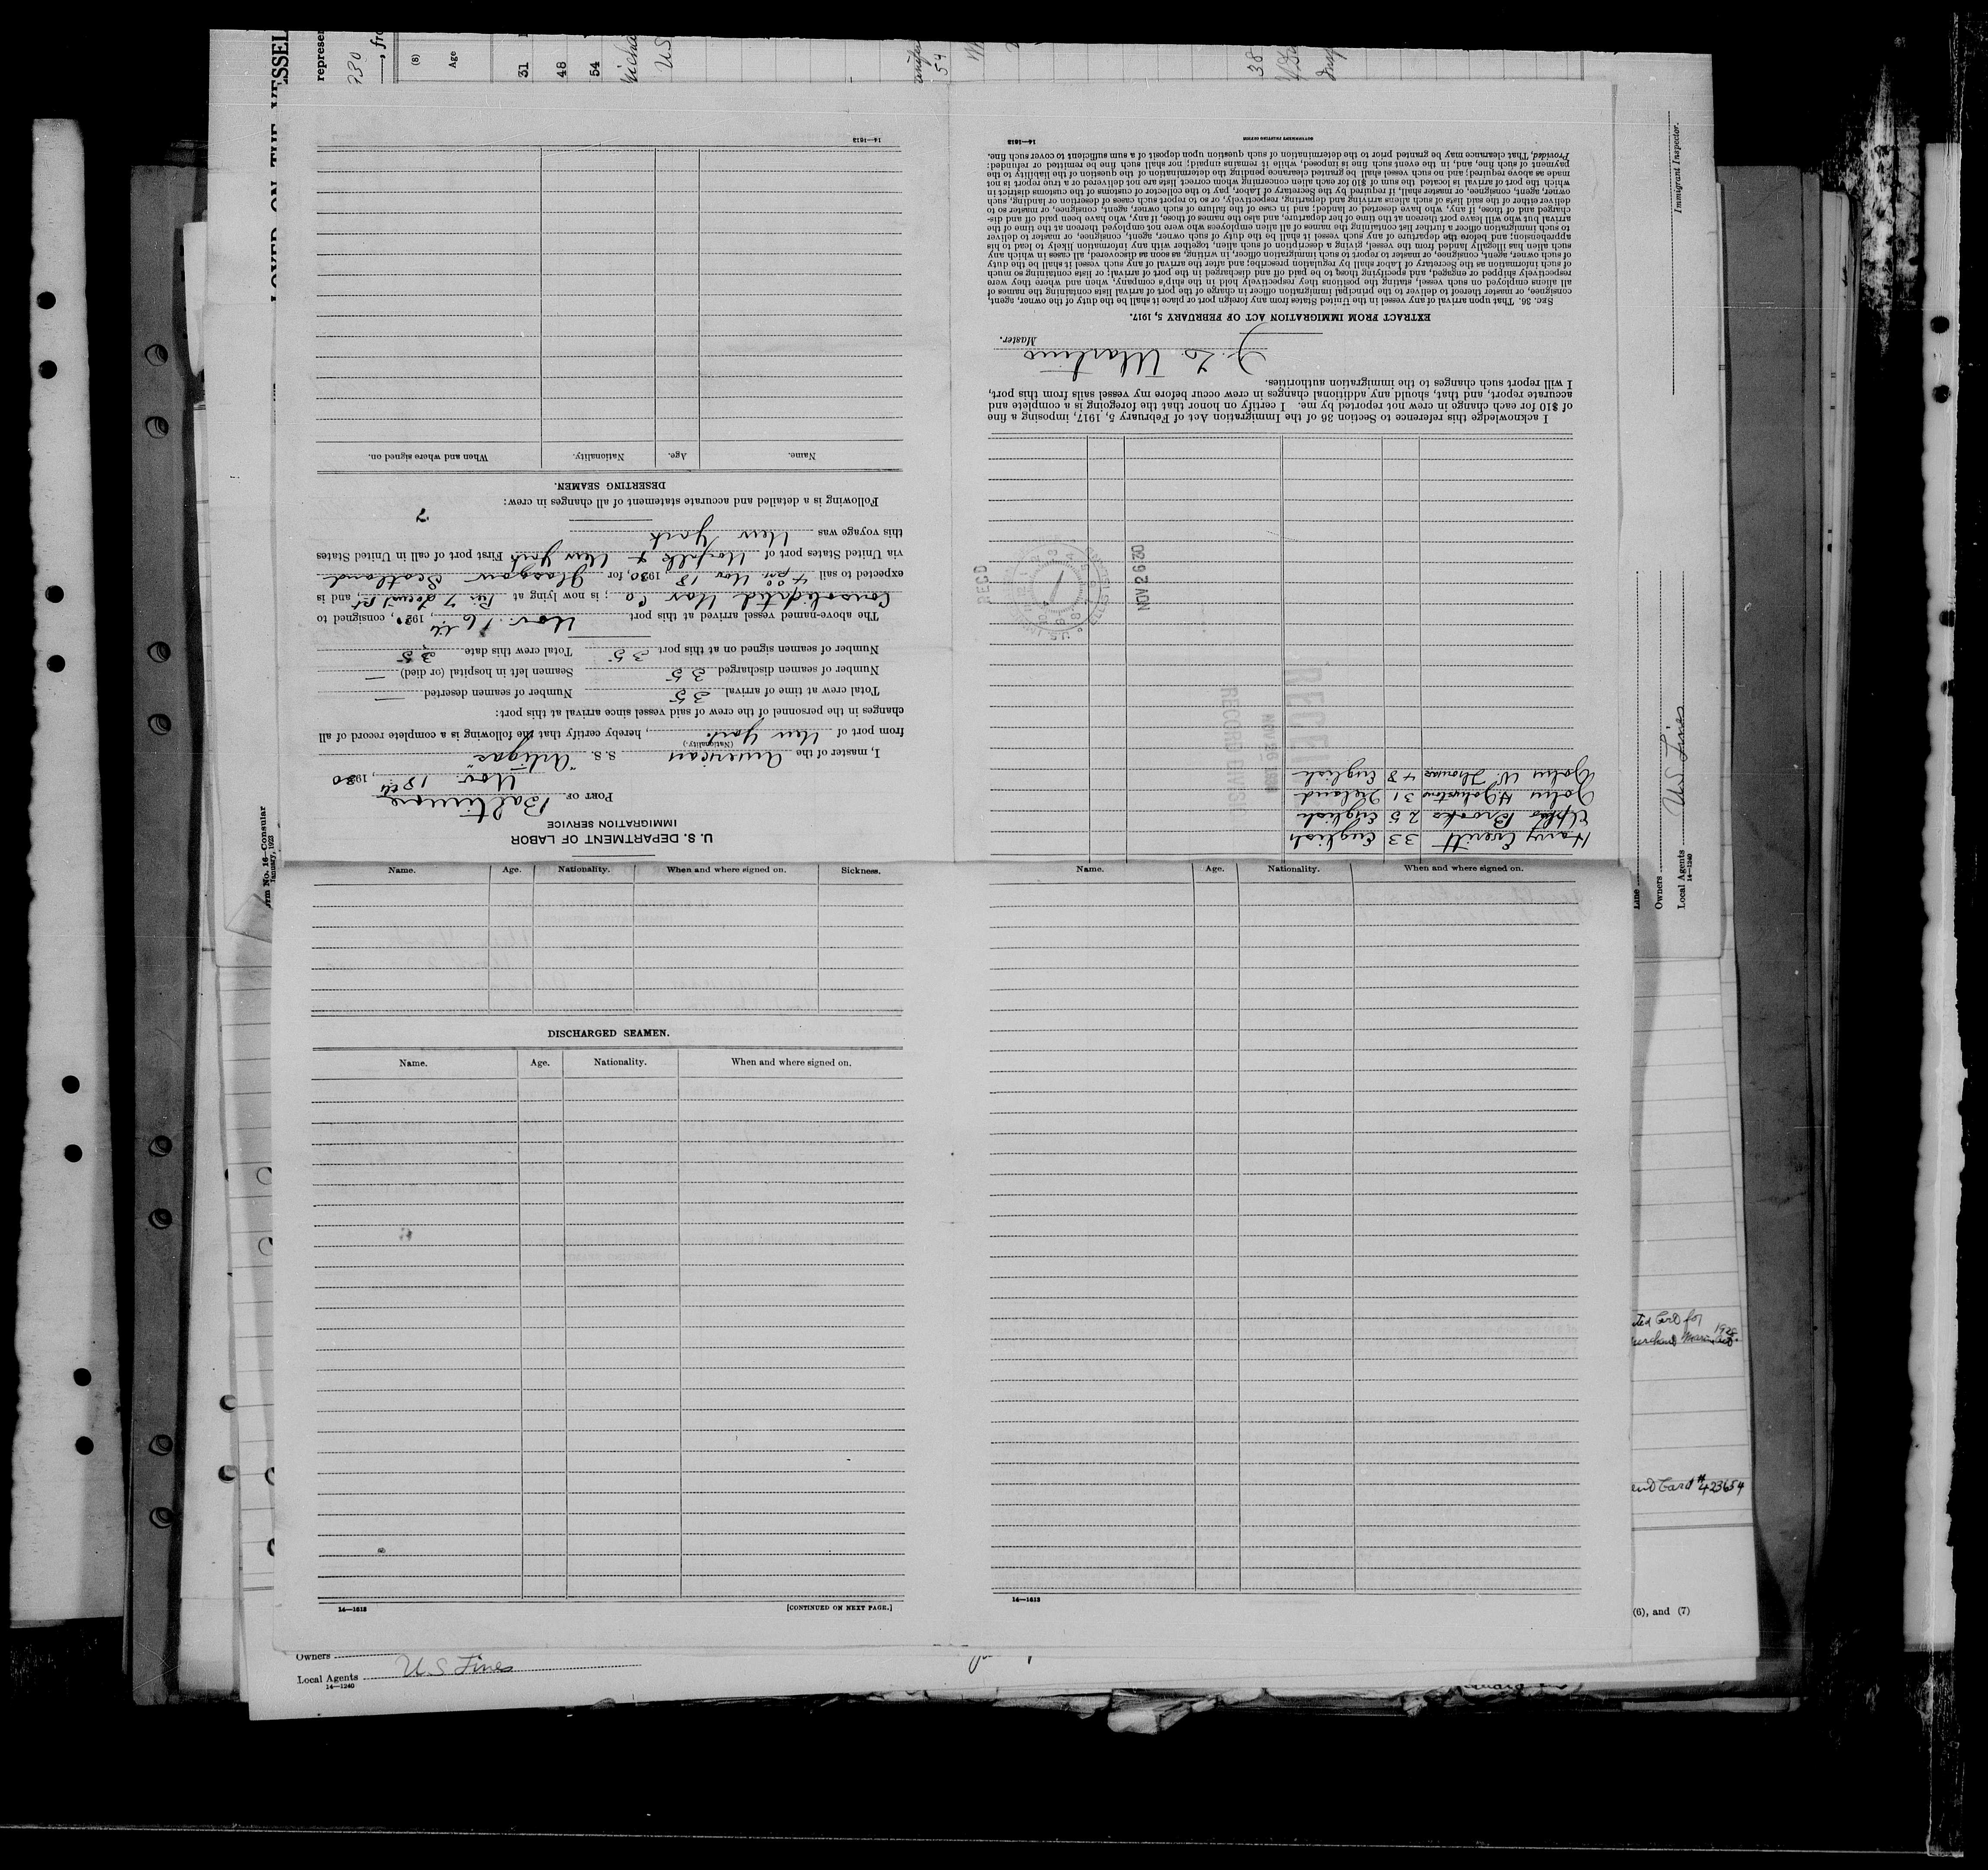 U. S. DEPARTMENT OF LABOR
IMMIGRATION SERVICE
PORT OF Baltimore
Nov 18th, 1930
I, master of the American S. S. "Artigas"
(Nationality.)
from port of New York, hereby certify that the following is a complete record of all
changes in the personnel of the crew of said vessel since arrival at this port:
Total crew at time of arrival 35 Number of seamen deserted —
Number of seamen discharged 35 Seamen left in hospital (or died) —
Number of seamen signed on at this port 35 Total crew this date 35
The above-named vessel arrived at this port Nov. 16th, 1930, consigned to
Consolidated Nav Co; is now lying at Pier 7, and is
expected to sail 4 00 pm Nov 18, 1930, for Glasgow Scotland
via United States port of Norfolk & New York First port of call in United States
this voyage was New York
Following is a detailed and accurate statement of all changes in crew:
DESERTING SEAMEN.
Name. Age. Nationality. When and where signed on.
14—1613
Name. Age. Nationality. When and where signed on. Sickness.
DISCHARGED SEAMEN.
Name. Age. Nationality. When and where signed on.
14—1613 [CONTINUED ON NEXT PAGE.]
Name. Age. Nationality. When and where signed on.
14—1613
Harry Everitt 33 English
Brooks 25 English
John H Johnstone 31 Ireland
John W. Thomas 48 English
RECORD DIVISI
NOV 26 1930
NOV 26 30
RECD
I acknowledge this reference to Section 36 of the Immigration Act of February 5, 1917, imposing a fine
of $10 for each change in crew not reported by me. I certify on honor that the foregoing is a complete and
accurate report, and that, should any additional changes in crew occur before my vessel sails from this port,
I will report such changes to the immigration authorities.
Master.
EXTRACT FROM IMMIGRATION ACT OF FEBRUARY 5, 1917.
SEC. 36. That upon arrival of any vessel in the United States from any foreign port or place it shall be the duty of the owner, agent,
consignee, or master thereof to deliver to the principal immigration officer in charge of the port of arrival lists containing the names of
all aliens employed on such vessel, stating the positions they respectively hold in the ship's company, when and where they were
respectively shipped or engaged, and specifying those to be paid off and discharged in the port of arrival; or lists containing so much
of such information as the Secretary of Labor shall by regulation prescribe; and after the arrival of any such vessel it shall be the duty
of such owner, agent, consignee, or master to report to such immigration officer, in writing, as soon as discovered, all cases in which any
such alien has illegally landed from the vessel, giving a description of such alien, together with any information likely to lead to his
apprehension; and before the departure of any such vessel it shall be the duty of such owner, agent, consignee, or master to deliver
to such immigration officer a further list containing the names of all alien employees who were not employed thereon at the time of the
arrival but who will leave port thereon at the time of her departure, and also the names of those, if any, who have been paid off and dis-
charged and of those, if any, who have deserted or landed; and in case of the failure of such owner, agent, consignee, or master so to
deliver either of the said lists of such aliens arriving and departing, respectively, or so to report such cases of desertion or landing, such
owner, agent, consignee, or master shall, if required by the Secretary of Labor, pay to the collector of customs of the customs district in
which the port of arrival is located the sum of $10 for each alien concerning whom correct lists are not delivered or a true report is not
made as above required; and no such vessel shall be granted clearance pending the determination of the question of the liability to the
payment of such fine, and, in the event such fine is imposed, while it remains unpaid; nor shall such fine be remitted or refunded:
Provided, That clearance may be granted prior to the determination of such question upon deposit of a sum sufficient to cover such fine.
14—1613 GOVERNMENT PRINTING OFFICE
Immigrant Inspector.
Line
Owners
Local Agents US Lines
14—1240
rm No. 16—Consular
January, 1922
(8)
Age
31
48
54
US
54
38
Card for
1928
end Card # 423654
(6), and (7)
Owners
Local Agents US Lines
14—1240